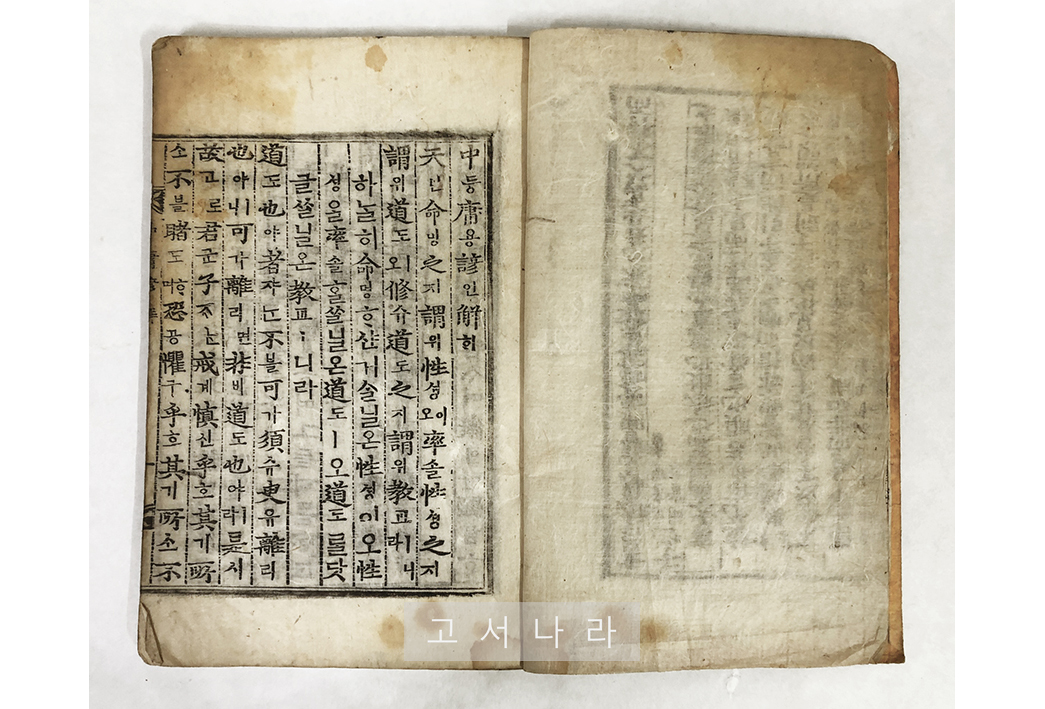 中듕庸용諺언解ᄒᆡ
天텬命명之지謂위性셩이오率솔性셩之지
謂위道도ㅣ오修슈道도之지謂위敎교ㅣ니라
하ᄂᆞᆯ히命명ᄒᆞ샨거ᄉᆞᆯ닐온性셩이오性
셩을率솔ᄒᆞᆯᄊᆞᆯ닐온道도ㅣ오道도ᄅᆞᆯ닷
ᄀᆞᆯᄊᆞᆯ닐온敎교ㅣ니라
道도也야者쟈ᄂᆞᆫ不블可가須슈臾유離리
也야ㅣ니可가離리면非비道도也야ㅣ라是시
故고로君군子ᄌᆞᄂᆞᆫ戒계愼신乎호其기所
소不블睹도ᄒᆞ며恐공懼구乎호其기所소不
고서나라